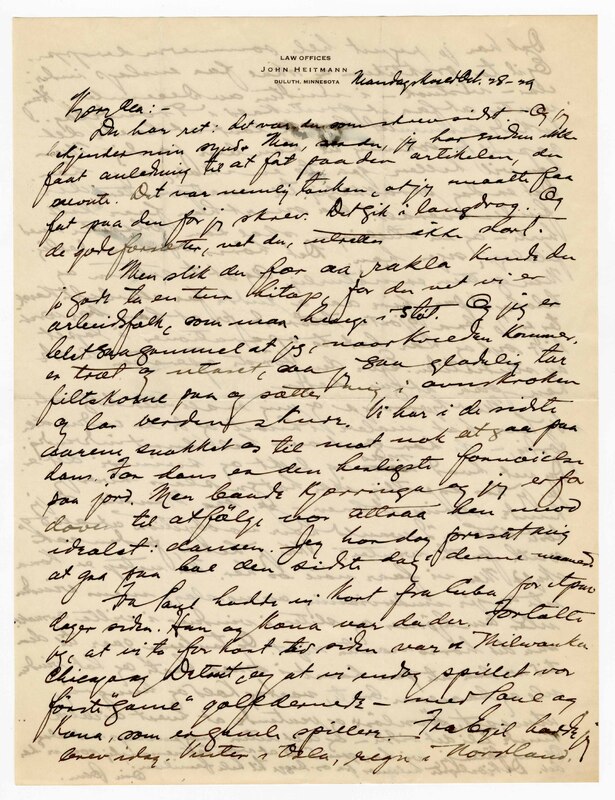 LAW OFFICES
JOHN HEITMANN
DULUTH, MINNESOTA
Mandagskveld Okt. 28-29
Kjære Ven:-
Du har ret: det var du som skrev sidst. Og jeg
bekjender min synd. Men, ser du, jeg har siden ikke
faat anledning til at fåt paa den artikelen, du
nevnte. Det var nemlig tanken, at jeg maatte faa
fat paa den før jeg skrev. Det gik i langdrag. Og
de gode forsæter, vet du, utretter ikke stort.
Men slik du fær aa rakla kunde du
jo godt ta en tur hitop, for du vet vi er
arbeidsfolk, som maa henge i støt. Og jeg er
blet saa gammel at jeg, naar kvelden kommer,
er træt og utaset, saa jeg saa gladelig tar
filtskoene paa og sætter mig i ovnskroken
og lar verden skure. Vi har i de sidste
aarene snakket os til mot nok at gaa paa
dans. For dans er den herligste fornøielse
paa jord. Men baade Kjerringa og jeg er for
dovne til at følge vor attraa hen mod
idealet: dansen. Jeg har dog foresat mig
at gaa paa bal den sidste dag i denne maaned
Fra Paul hadde vi kort fra Cuba for et par
dager siden. Han og Mona var der. Fortalte
jeg, at vi to for kort tid siden var i Milwaukee
Chicago og Detroit, og at vi endog spillet vor
første "game" golf dernede - med Paul og
Mona, som er gamle spillere. Fra Egil hadde jeg
brev idag. Vinter i Oslo, regn i Nordland.